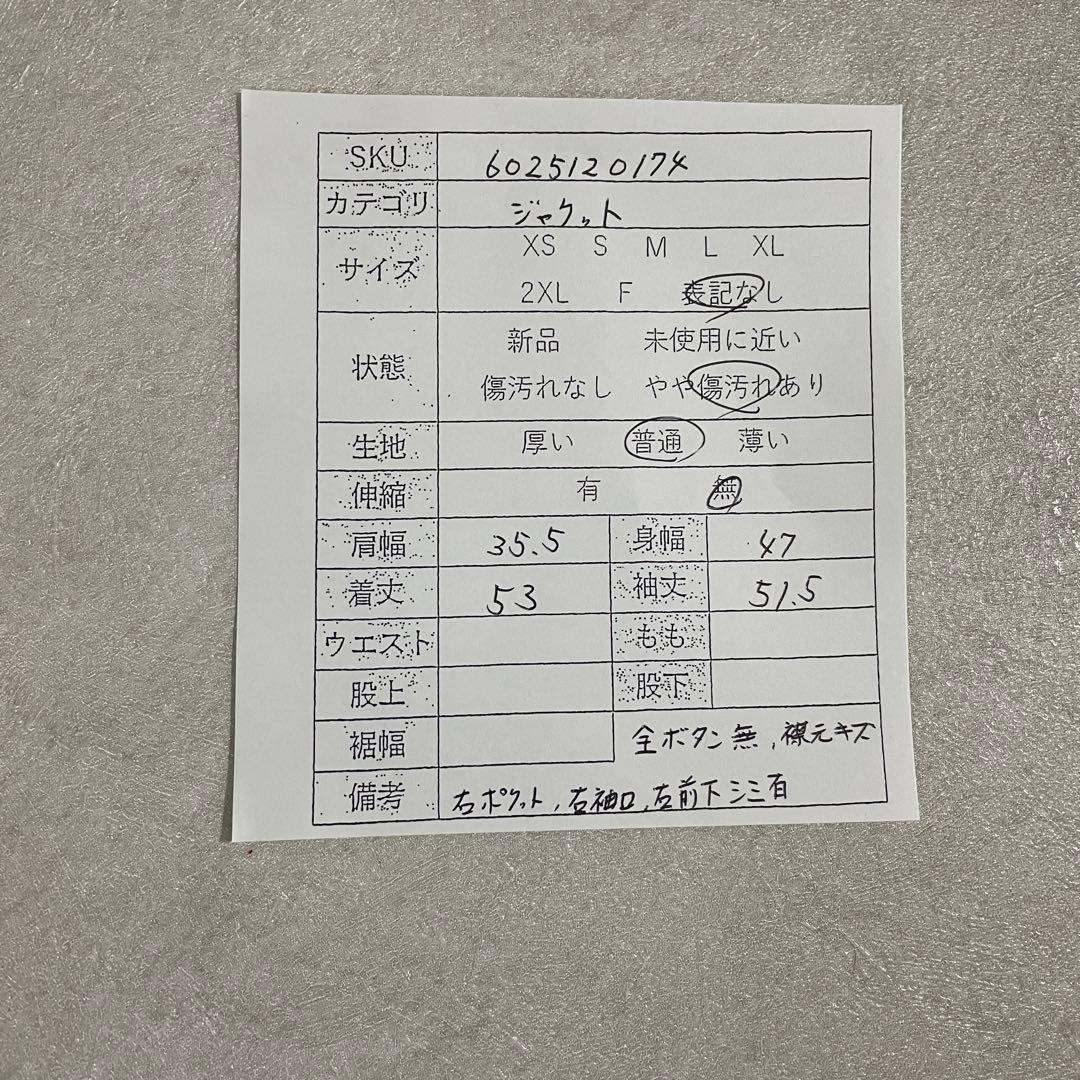 SKU 6025120174
カテゴリ ジャケット
サイズ XS S M L XL
2XL F 表記なし
状態 新品 未使用に近い
傷汚れなし やや傷汚れあり
生地 厚い 普通 薄い
伸縮 有 無
肩幅 35.5 身幅 47
着丈 53 袖丈 51.5
ウエスト もも
股上 股下
裾幅 全ボタン無,襟元キズ
備考 右ポケット,右袖口,左前下シミ有